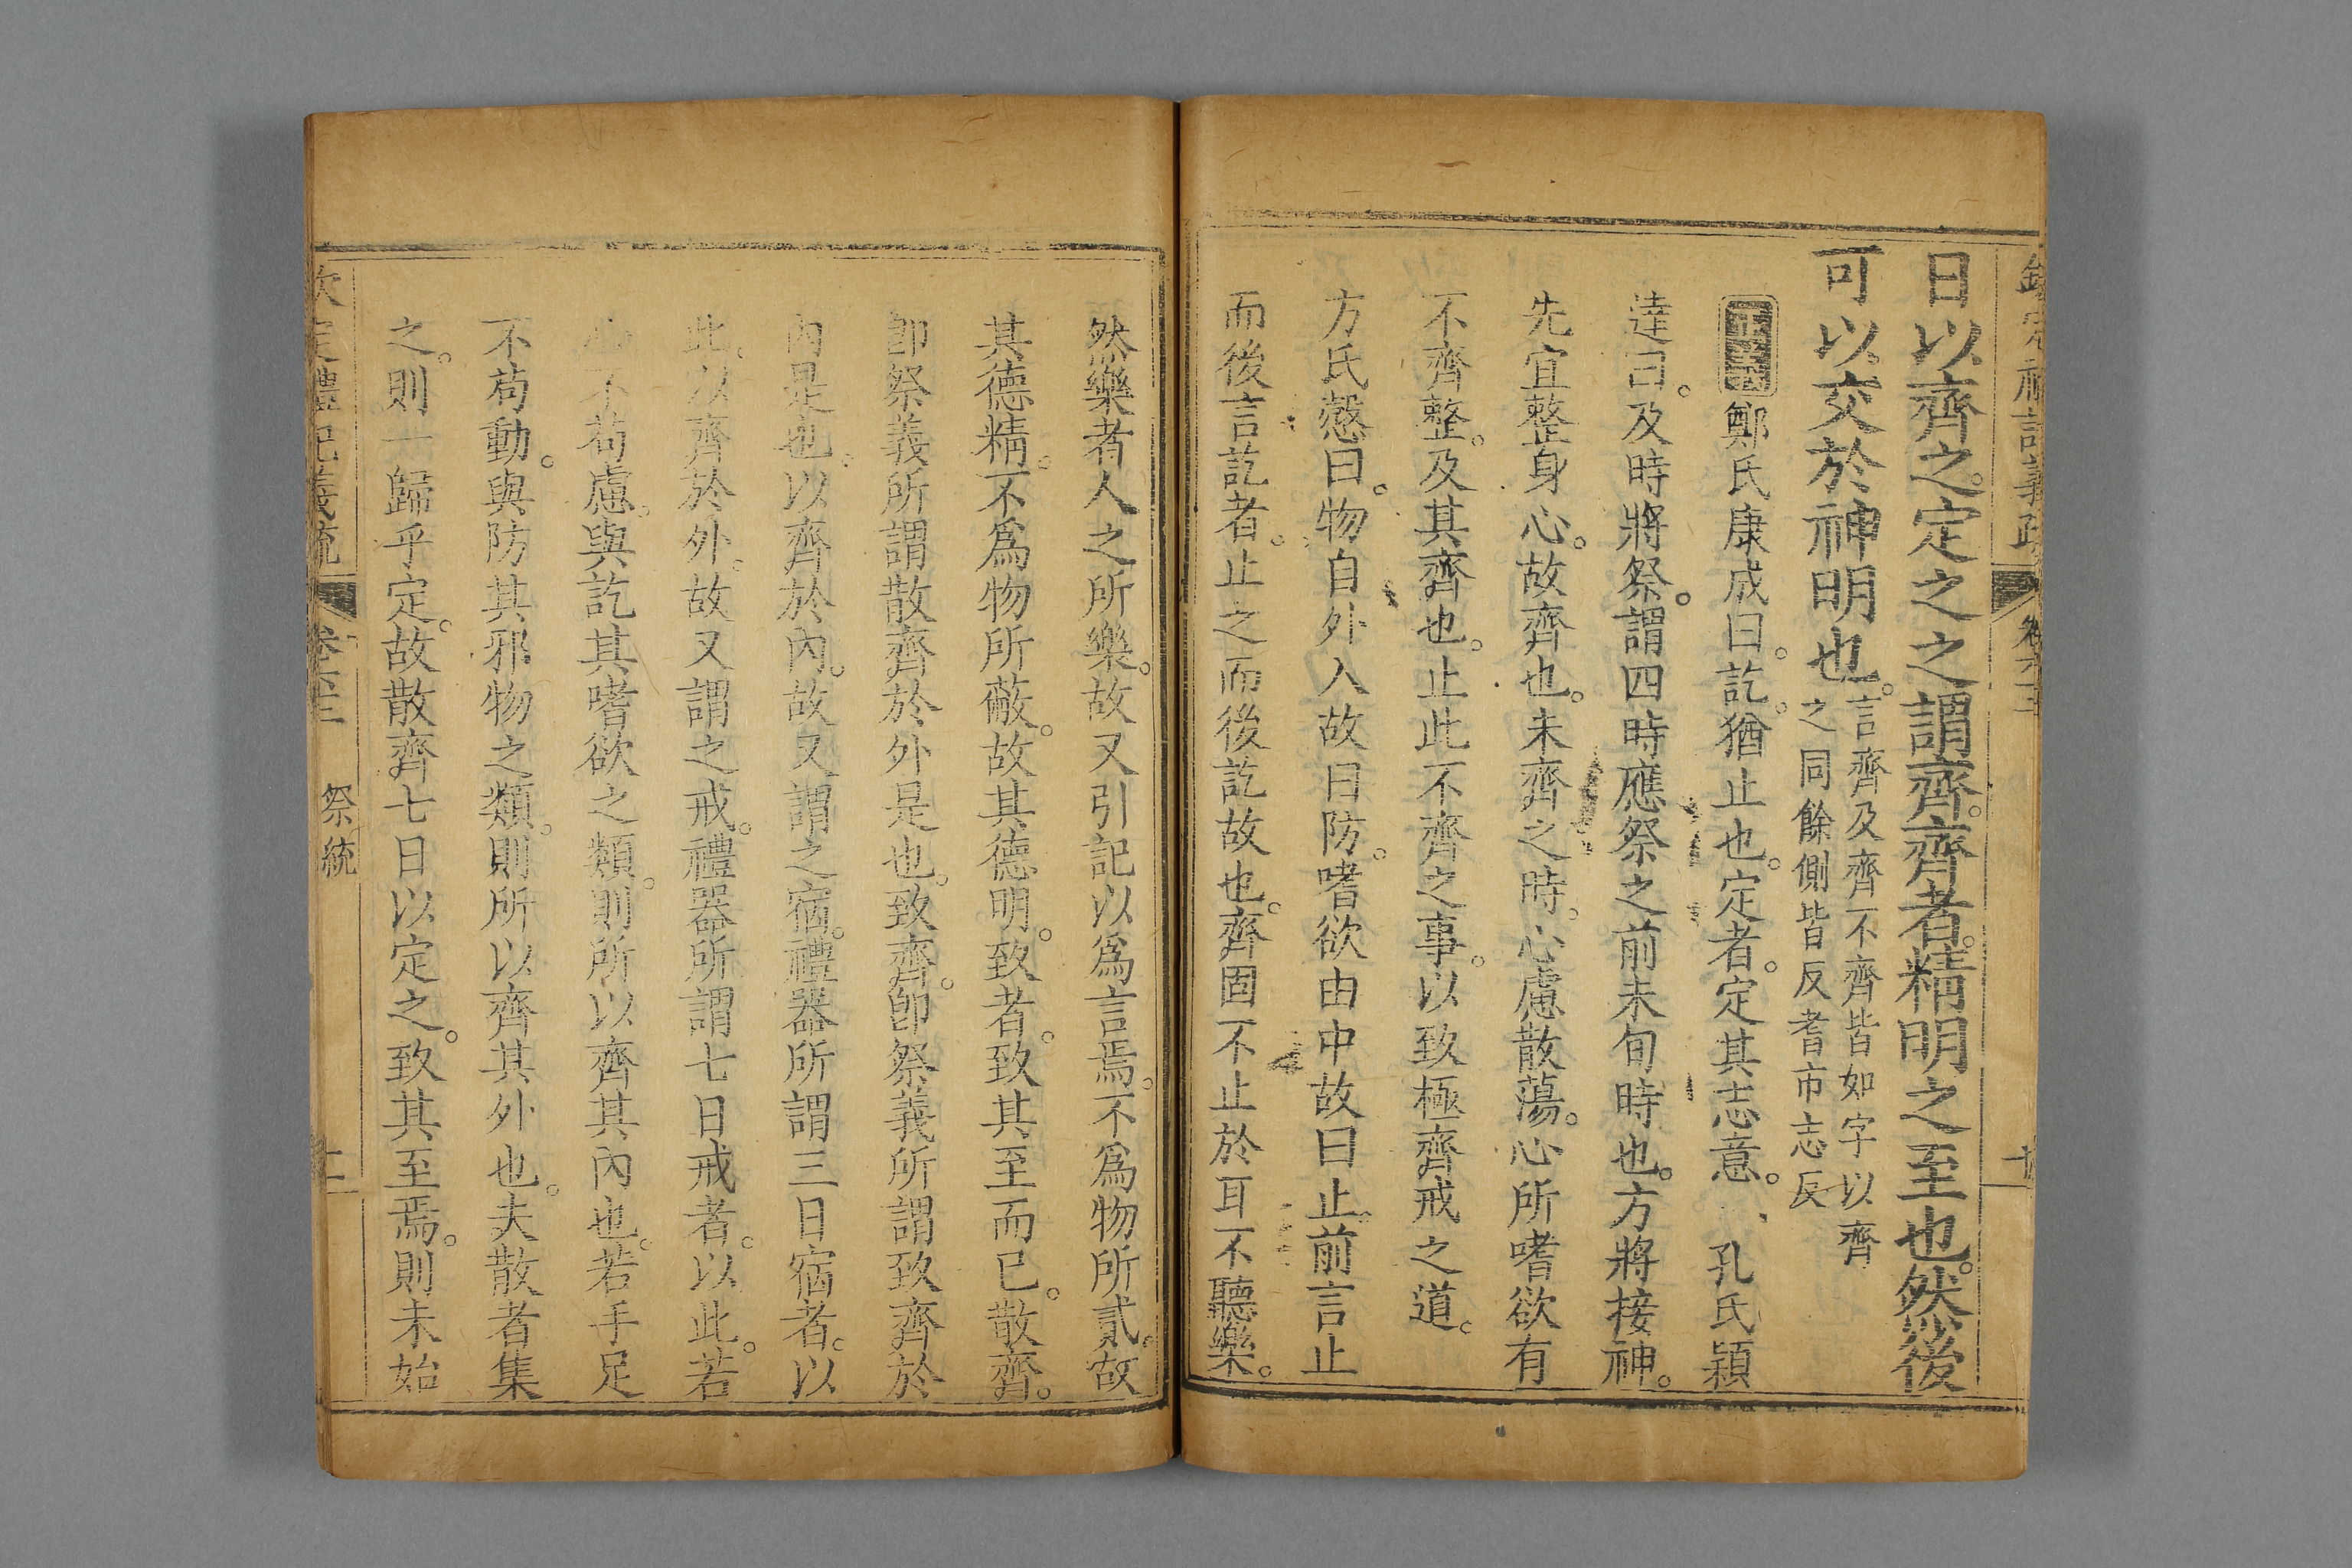 日以齊之。定之之謂齊。齊者。精明之至也。然後
可以交於神明也。
言齊及齊不齊皆如字以齊
之同餘側皆反耆市志反
正義 鄭氏康成曰。訖。猶止也。定者。定其志意。 孔氏穎
達曰。及時將祭。謂四時應祭之前未旬時也。方將接神。
先宜整身心。故齊也。未齊之時。心慮散蕩。心所嗜欲有
不齊整。及其齊也。止此不齊之事。以致極齊戒之道。
方氏慤曰。物自外入故曰防。嗜欲由中故曰止。前言止
而後言訖者。止之而後訖故也。齊固不止於耳不聽樂。
然樂者人之所樂。故又引記以爲言焉。不爲物所貳。故
其德精。不爲物所蔽。故其德明。致者。致其至而已。散齊。
卽祭義所謂散齊於外是也。致齊。卽祭義所謂致齊於
內是也。以齊於內。故又謂之宿。禮器所謂三日宿者。以
此。以齊於外。故又謂之戒。禮器所謂七日戒者。以此。若
心不苟慮。與訖其嗜欲之類。則所以齊其內也。若手足
不苟動。與防其邪物之類。則所以齊其外也。夫散者集
之。則一歸乎定。故散齊七日以定之。致其至焉。則未始
欽定禮記義疏 卷六十三 祭統